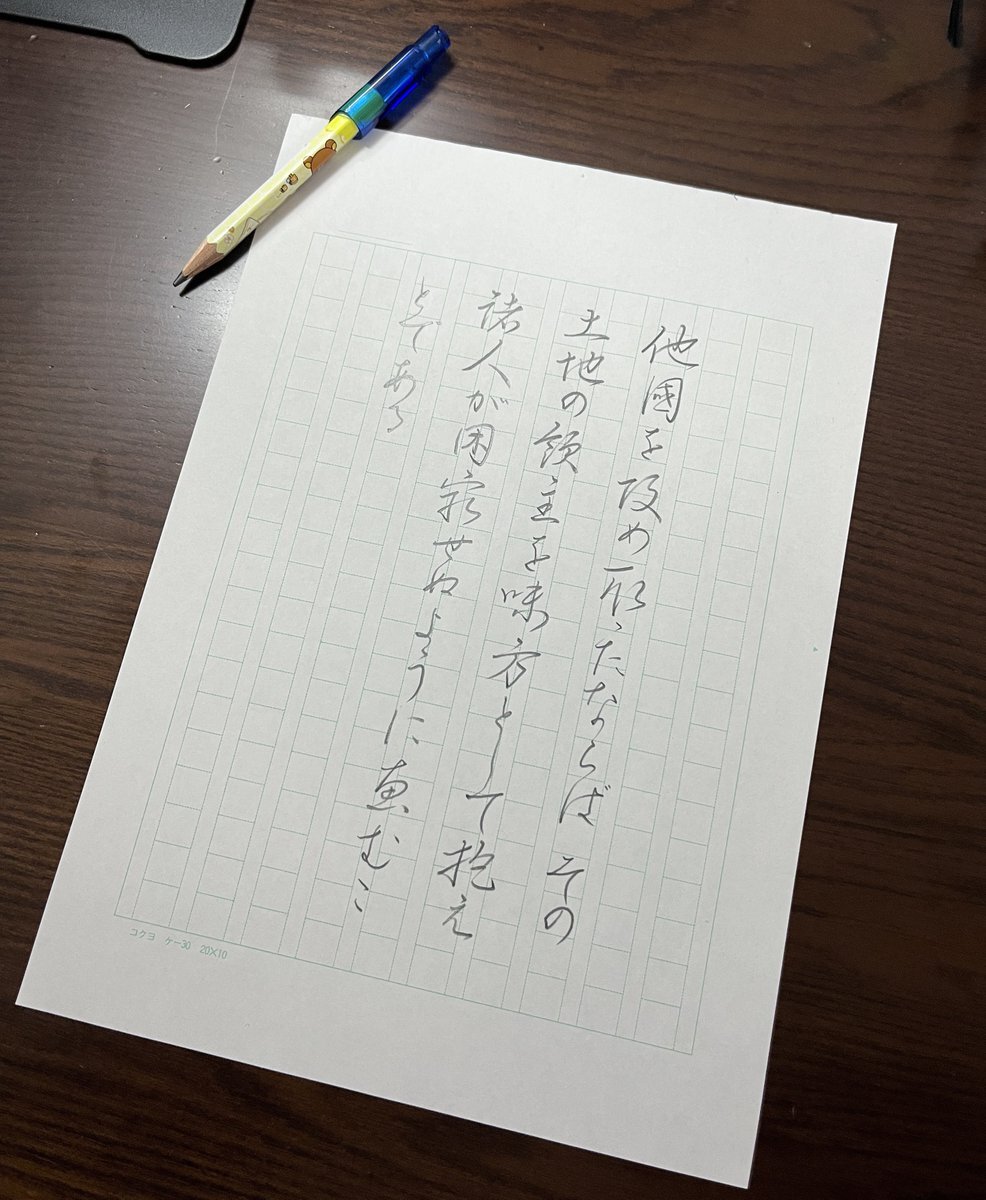 他國を攻め取ったならば その
土地の領主を味方として抱え
諸人が困窮せぬように恵むこ
とである
コクヨ ケ-30 20×10